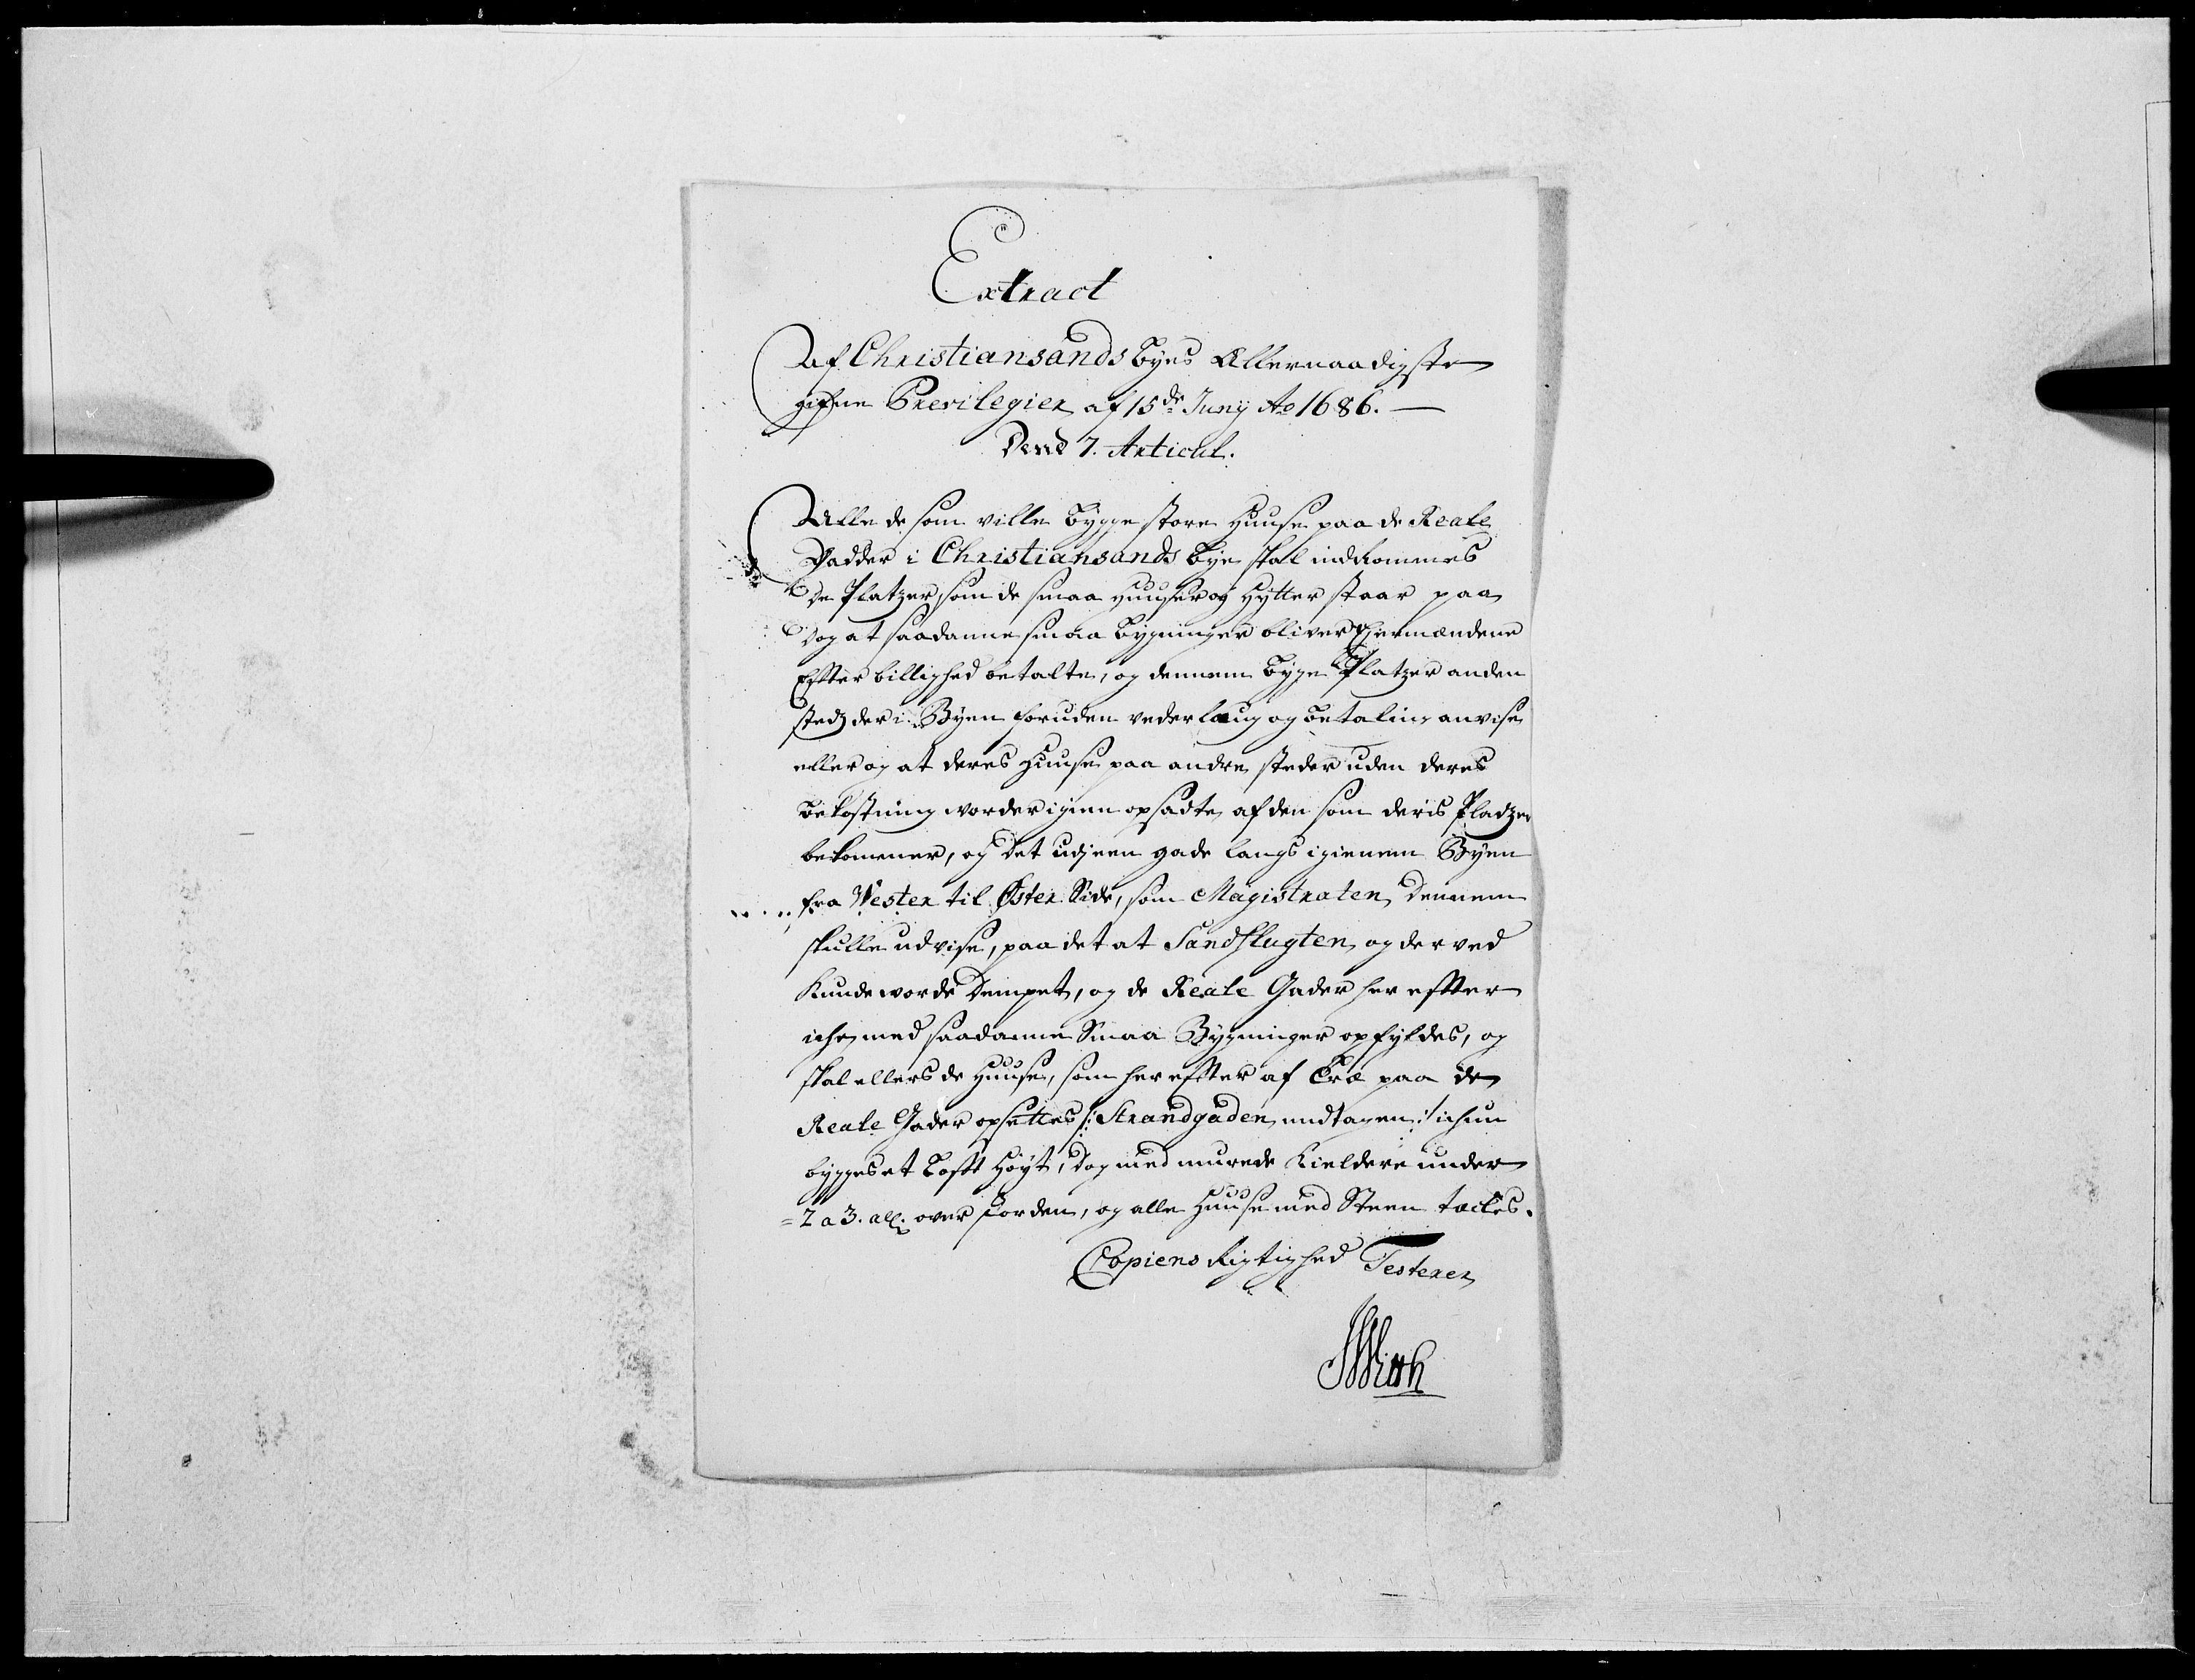 Extract
Af Christiansands Byes Allernaadigste
gifne Previlegier af 15de Junij Ao 1686.
Dend 7. Articul.
Alle de som ville bygge store Huuse paa de Reale
Gadder i Christiansands Bye skal indrommes
de Platzer, som de smaa Huuser og Hytter staar paa
Dog at saadanne smaa bygninger bliver Eiermændene
Efter billighed betalte, og dennem bygge Platzer anden
stedz der i Byen foruden vederlaug og betaling anvise
eller og at deres Huuse paa andre steder uden deres
bekostning worder igien opsadte af den som deris Pladzer
bekommer, og det udj een gade langs igienem Byen
fra Vester til Øster Side, som Magistraten dennem
skulle udvise, paa det at Sandflugten og derved
kunde worde dempet, og de Reale Gader her effter
iche med saadanne Smaa Bygninger opfyldes, og
skal ellers de Huuse, som her effter af Træ paa de
Reale Gader opsettes /: Strandgaden undtagen :/ ichun
bygges et Lofft Høyt, dog med murede Kieldere under
2 a 3. all. over Jorden, og alle Huuse med Steen tæckes.
Copiens Rigtighed Testerer